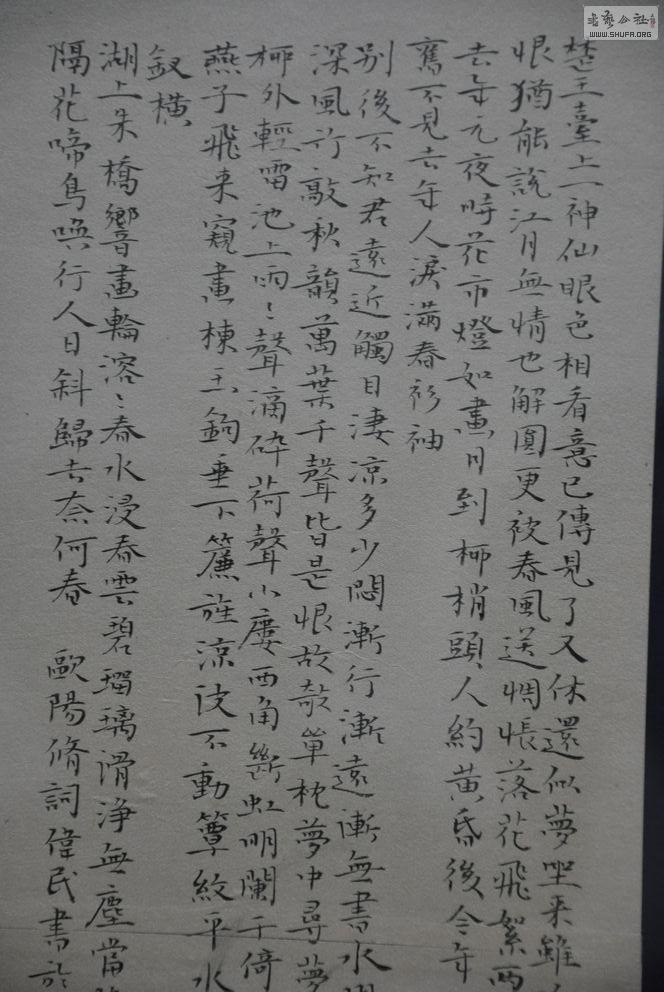 楚王臺上一神仙眼色相看意已傳見了又休還似夢坐来雖
恨猶能說江月無情也解圓更被春風送惆悵落花飛絮兩
去年元夜時花市燈如晝月到柳梢頭人約黃昏後今年
舊不見去年人淚滿春衫袖
別後不知君遠近觸目凄涼多少悶漸行漸遠漸無書水
深風竹敲秋韻萬葉千聲皆是恨故敧單枕夢中尋夢
柳外輕雷池上雨雨〻聲滴碎荷聲小廔西角斷虹明闌干倚
燕子飛来窺畫棟玉鉤垂下簾旌涼波不動簟紋平水
釵橫
湖上朱橋響畫輪溶〻春水浸春雲碧琉璃滑淨無塵當
隔花啼鳥喚行人日斜歸去奈何春 歐陽脩詞偉民書於
书艺公社
WWW.SHUFA.ORG